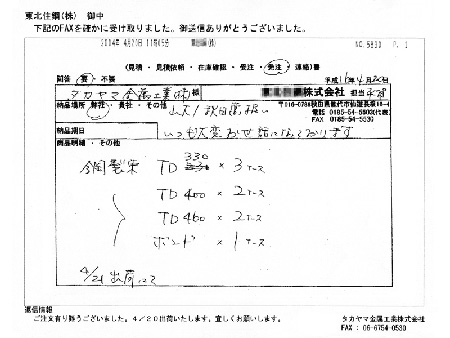 東北住鋼(株) 御中
下記のFAXを確かに受け取りました。御送信ありがとうございました。
2004年 4月20日 11時05分 NO.5830 P. 1
(見積・見積依頼・在庫確認・受注・発注・連絡)書
回信 要・不要 平成16年4月20日
タカヤマ金属工業(株)様 株式会社 担当
納品場所 弊社・貴社・その他
〒016-0768秋田県能代市
電話 0185-54-5500(代表)
FAX 0185-54-5530
納品期日 いつも大変お世話になっております
商品明細・その他
330
TD × 3ケース
TD400 × 2ケース
TD460 × 2ケース
ボンド × 1ケース
4/21 出荷にて
返信情報
ご注文有り難うございました。4/20出荷いたします。宜しくお願いします。
タカヤマ金属工業株式会社
FAX : 06-6754-0530